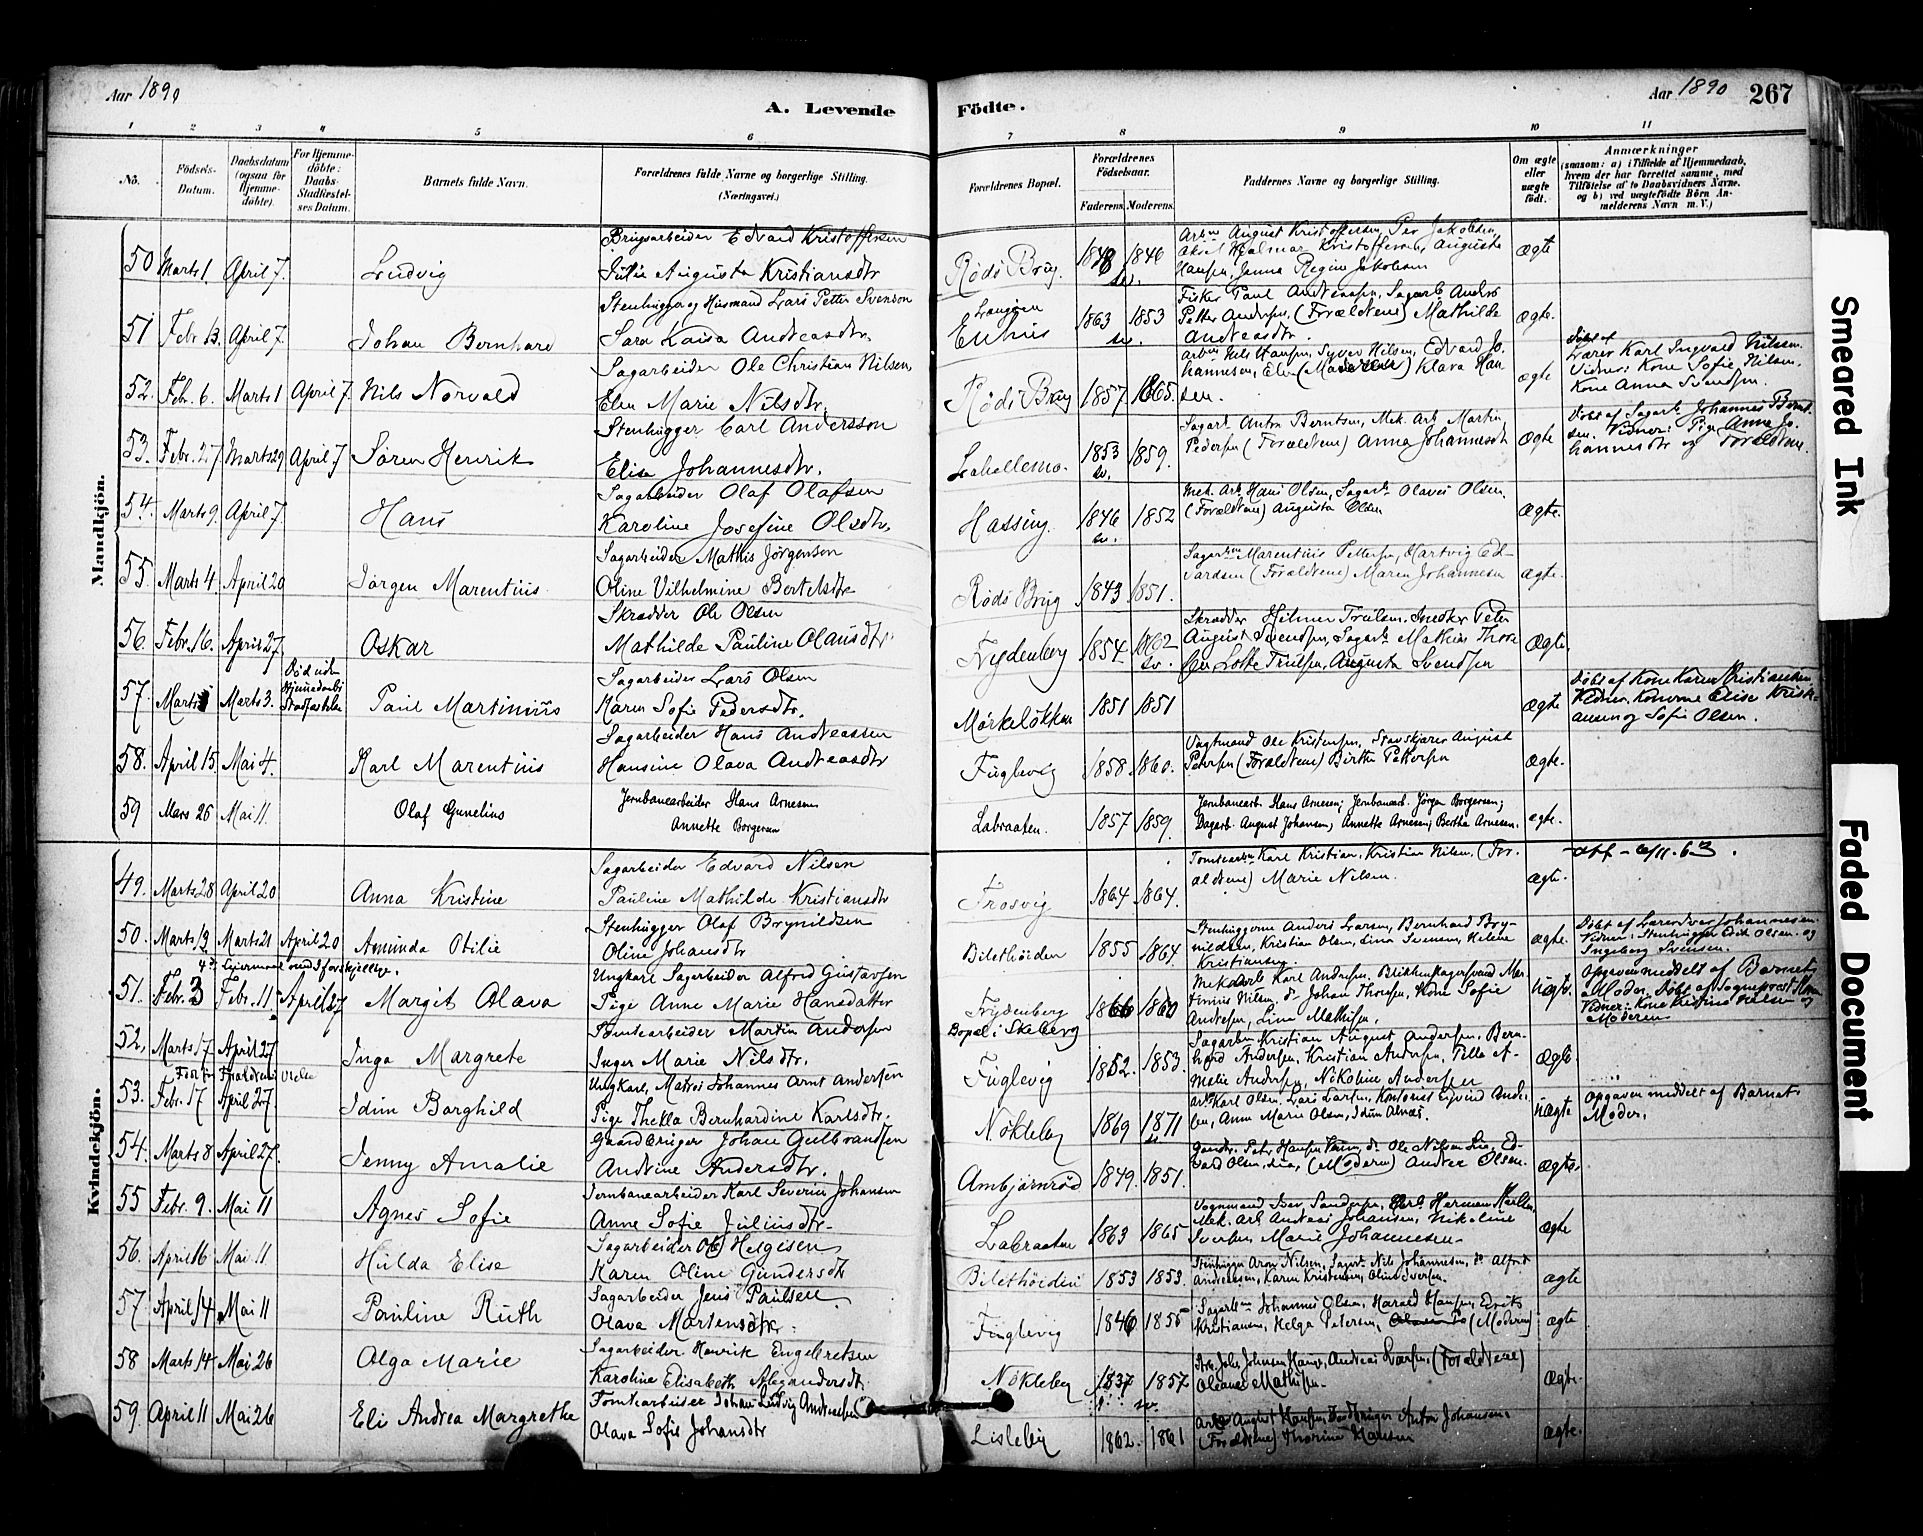 Aar 1890
A. Levende Födte.
Aar 1890 267
1 2 3 4 5 6 7 8 9 10 11
No.
Födsels-Datum.
Daabsdatum (ogsaa for Hjemme-döbte).
For Hjemme-döbte: Daabs-Stadfæstel-ses Datum.
Barnets fulde Navn.
Forældrenes fulde Navne og borgerlige Stilling. (Næringsvei.)
Forældrenes Bopæl.
Forældrenes Födselsaar.
Faderens. Moderens.
Faddernes Navne og borgerlige Stilling.
Om ægte eller uægte födt.
Anmærkninger
(saasom: a) i Tilfælde af Hjemmedaab,
hvem der har forrettet samme, med
Tilföielse af to Daabsvidners Navne.
og b) ved uægtefödte Börn An-
melderens Navn m. V.)
Mandkjön.
50 Marts 1. April 7. Ludvig
Brugsarbeider Edvard Kristoffersen
Julie Augusta Kristiansdtr
Röds Brug. 1848 sv. 1846
Arbm August Kristoffersen, Per Jakobsen,
Aksel Hjalmar Kristoffersen, Augusta
Hansen, Janna Regine Jakobsen
Ægte
51 Febr 13. April 7. Johan Bernhard
Stenhugger og Husmand Lars Petter Svenson
Sara Kaisa Andreasdtr.
Enhus 1863 sv. 1853
Fisker Paul Andreassen, Sagarb. Anders
Petter Andersen, (Forældrene) Mathilde
Andreasdtr.
Ægte.
52. Feb. 6. Marts 1 April 7 Nils Norvald
Sagarbeider Ole Christian Nilsen
Elen Marie Nilsdtr.
Röds Brug 1857 1865.
Arbm Nils Hansen, Syver Nilsen, Edvard Jo-
hannesen, Elen (Moderen) Klara Han-
sen.
Ægte
Döbt af
Lærer Karl Ingvald Nilsen.
Vidner: Kone Sofie Nilsen.
Kone Anna Svendsen.
53. Febr. 27 Marts 29 April 7 Sören Henrik
Stenhugger Carl Andersson
Elise Johannesdtr.
Lahellemo. 1853 sv. 1859.
Sagarb. Anton Berntsen, Mek. Arb. Martin
Pedersen (Forældrene) Anna Johannesdt
Ægte
Döbt af Sagarb. Johannes Bernt-
sen. Vidner: Pige Anna Jo-
hannesdtr og Forældrene.
54. Marts 9. April 7. Hans
Sagarbeider Olaf Olafsen
Karoline Josefine Olsdtr.
Hassing. 1846 sv. 1852
Mek. Arb. Hans Olsen, Sagarb. Olaves Olsen.
(Forældrene) Augusta Olsen
Ægte.
55. Marts 4. April 20 Jörgen Marentius.
Sagarbeider Mathis Jörgenson
Oline Vilhelmine Bertelsdtr
Röds Brug 1843 1851.
Sagarbm Marentius Pettersen, Hartvig Ed-
vardsen (Forældrene) Maren Johannesen
Ægte.
56. Febr. 16. April 27 Oskar
Skrædder Ole Olsen
Mathilde Pauline Olausdtr
Frydenberg 1854 1862 sv.
Skrædder Hilmer Trulsen, Snedker Peter
August Svendsen, Sagarb. Mathias Thore
sen Lotte Trulsen, Augusta Svendsen
Ægte.
57. Marts 1 Marts 3. Död uden Hjemmedaabs Stadfæstelse Paul Martinius
Sagarbeider Lars Olsen
Karen Sofie Pedersdtr.
Mörkelökken 1851 1851
Ægte
Döbt af Kone Karen Kristiansen.
Vidner, Konerne Elise Kristi-
ansen og Sofie Olsen.
58. April 15. Mai 4. Karl Marentius
Sagarbeider Hans Andreassen
Hansine Olava Andreasdtr
Fuglevig 1858 1860.
Vagtmand Ole Kristensen, Stavskjærer August
Petersen (Forældrene) Birthe Pettersen
Ægte.
59 Mars 26 Mai 11. Olaf Gunelius
Jernbanearbeider Hans Arnesen
Annette Borgersen
Labraaten. 1857 1859.
Jernbanearb. Hans Arnesen; Jernbanearb. Jörgen Borgersen;
Dagarb. August Johansen; Annette Arnesen; Bertha Arnesen.
ægte.
Kvindekjön.
49. Marts 28 April 20 Anna Kristine
Sagarbeider Edvard Nilsen
Pauline Mathilde Kristiansdtr
Trosvig 1864 1864.
Tomtearbm Karl Kristian, Kristian Nilsen, (For-
ældrene) Marie Nilsen.
Ægte.
50. Marts 13 Marts 21 April 20 Aminda Otilie
Stenhugger Olaf Brynildsen
Oline Johansdtr
Bilethöiden 1855 1864.
Stenhuggerne Anders Larsen, Bernhard Bry-
nildsen, Kristian Olsen, Lina Svensen, Helene
Kristiansen.
Ægte.
Döbt af Lærer Iver Johannesen.
Vidner: Stenhugger Edv. Olsen. og
Ingeborg Svensen.
4de Leiermaal med 3 forskjellige.
51. Febr. 3 Febr. 11 April 27 Margit Olava
Ungkarl Sagarbeider Alfred Gustavsen
Pige Anne Marie Hansdatter
Frydenberg
Bopæl i Skeberg 1866 1860
Mek. Arb. Karl Andresen, Blikkenslagersvend Mar-
tinius Nilsen, do Johan Thoresen, Kone Sofie
Andresen, Lina Mathisen.
uægte.
Opgaven meddelt af Barnets
Moder. Döbt af Sogneprest
Vidner: Kone Kristine Nilsen og
Moderen
52. Marts 17 April 27 Inga Margrete
Tomtearbeider Martin Andersen
Inger Marie Nilsdtr.
Fuglevig 1852. 1853.
Sagarbm Kristian August Andersen, Bern-
hard Andersen, Kristian Andersen, Tilla A-
malie Andersen, Nikoline Andersen
Ægte
53. Febr. 17 April 27. Idun Borghild
Ungkarl, Matros Johannes Arnt Andersen
Pige Thekla Bernhardine Karlsdtr.
Nökleby 1869 1871
Arb. Karl Olsen, Lars Larsen, Kontorist Eyvind Ander-
sen, Anna Marie Olsen, Idun Alnæs.
uægte
Opgaven meddelt af Barnets
Moder.
54. Marts 8 April 27. Jenny Amalie
Gaardbruger Johan Gulbrandsen
Andrine Andersdtr.
Ambjörnröd 1849. 1851.
Gaardbr. Peter Hansen, do Ole Nilsen, Ed-
vard Olsen, (Moderen) Andrea Olsen.
Ægte.
55 Febr. 9. Mai 11 Agnes Sofie
Jernbanearbeider Karl Severin Johansen
Anne Sofie Juliusdtr.
Labraaten 1863 1865
Vognmand Iver Sandersen, Herman Karlsen,
Mek. Arb. Andreas Johansen, Nikoline
Iversen, Marie Johannesen.
Ægte
56. April 16 Mai 11 Hulda Elise
Sagarbeider Ole Helgesen
Karen Oline Gundersdtr
Bilethöiden 1853 1853.
Stenhugger Aron Nilsen, Sagarb. Nils Johannesen, do Alfred
Andreasen, Karen Kristensen, Oline Iversen.
Ægte
57 April 14 Mai 11 Pauline Ruth
Sagarbeider Jens Paulsen
Olava Martensdtr.
Fuglevig 1846 1855
Sagarbm Johannes Olsen, Harald Hansen, Edvits
Kristiansen, Helga Petersen, (Moderen)
Ægte
58 Marts 14 Mai 26 Olga Marie
Sagarbeider Henrik Engebretsen
Karoline Elisabeth Alexandersdtr.
Nökleby 1837 1857 sv.
Arb. Johs. Johnsen, Andreas Larsen, (Forældrene)
Oleane Mathisen.
Ægte.
59. April 11 Mai 26 Eli Andrea Margrethe
Tomtearbeider Johan Ludvig Andreasen
Olava Sofie Johansdtr
Lisleby 1862. 1861
Arb. August Hansen, Anton Johansen,
(Forældrene) Thorine Hansen
Ægte.
Smeared Ink
Faded Document